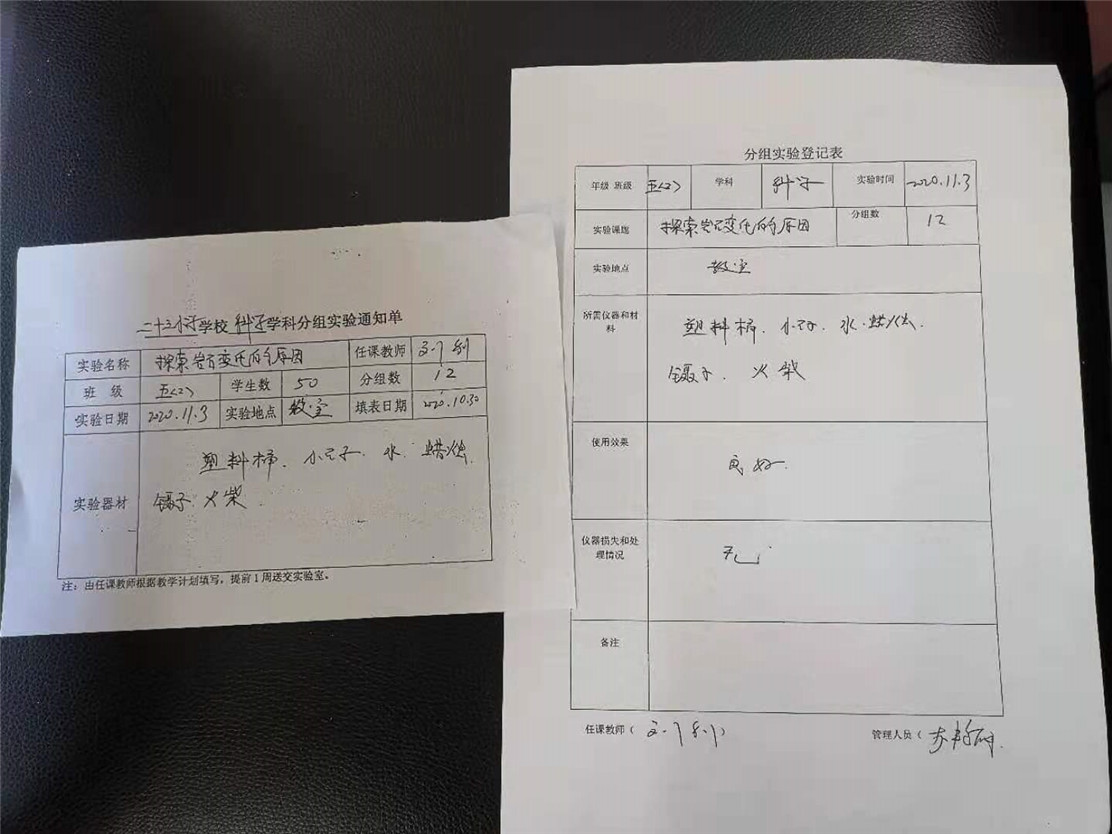 二十三小学校 科学 学科分组实验通知单
实验名称 探索岩石变化的原因 任课教师
班 级 五<2> 学生数 50 分组数 12
实验日期 2020.11.3 实验地点 教室 填表日期 2020.10.30
实验器材 塑料杯、小石子、水、蜡烛、
镊子、火柴.
注：由任课教师根据教学计划填写，提前1周送交实验室。
分组实验登记表
年级 班级 五<2> 学科 科学 实验时间 2020.11.3
实验课题 探索岩石变化的原因 分组数 12
实验地点 教室
所需仪器和材料 塑料杯、小石子、水、蜡烛、
镊子、火柴
使用效果 良好.
仪器损失和处理情况 无
备注
任课教师（ ）
管理人员（